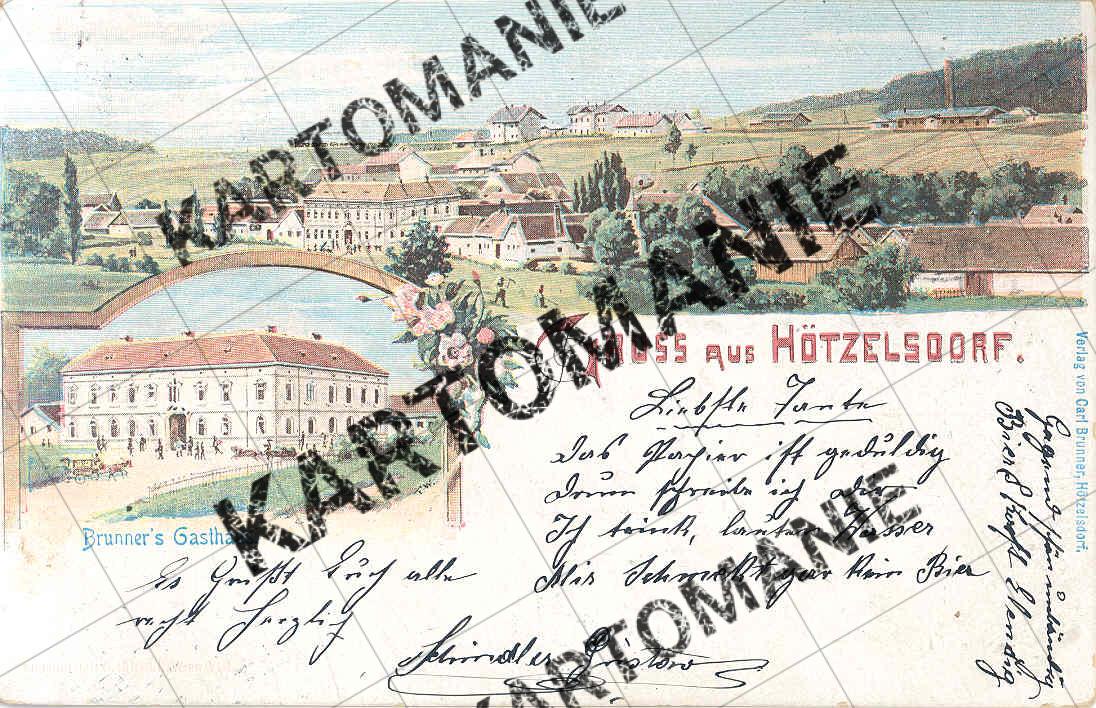 KARTOMANIE
KARTOMANIE
KARTOMANIE
GRUSS AUS HÖTZELSDORF.
Verlag von Carl Brunner, Hötzelsdorf.
Brunner's Gasthaus
Liebste Tante
Das Papier ist geduldig
Drum schreibe ich
Ich trink, lauter Wasser
Mir Schmekt gar kein Bier
Es Grüßt Euch alle
recht Herzlich
Schindler Gustav
Gegend schön
Bier